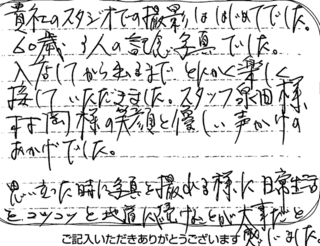 貴社のスタジオでの撮影ははじめてでした。
60歳、3人の記念写真でした。
入店してから出るまでとにかく楽しく
採していただきました。スタッフ泉田様、
様の笑顔と優しい声かけの
おかげでした。
思い立った時に写真を撮れる様に日常生活
をコツコツと地道に続けることが大事だと
ご記入いただきありがとうございます 感じました。